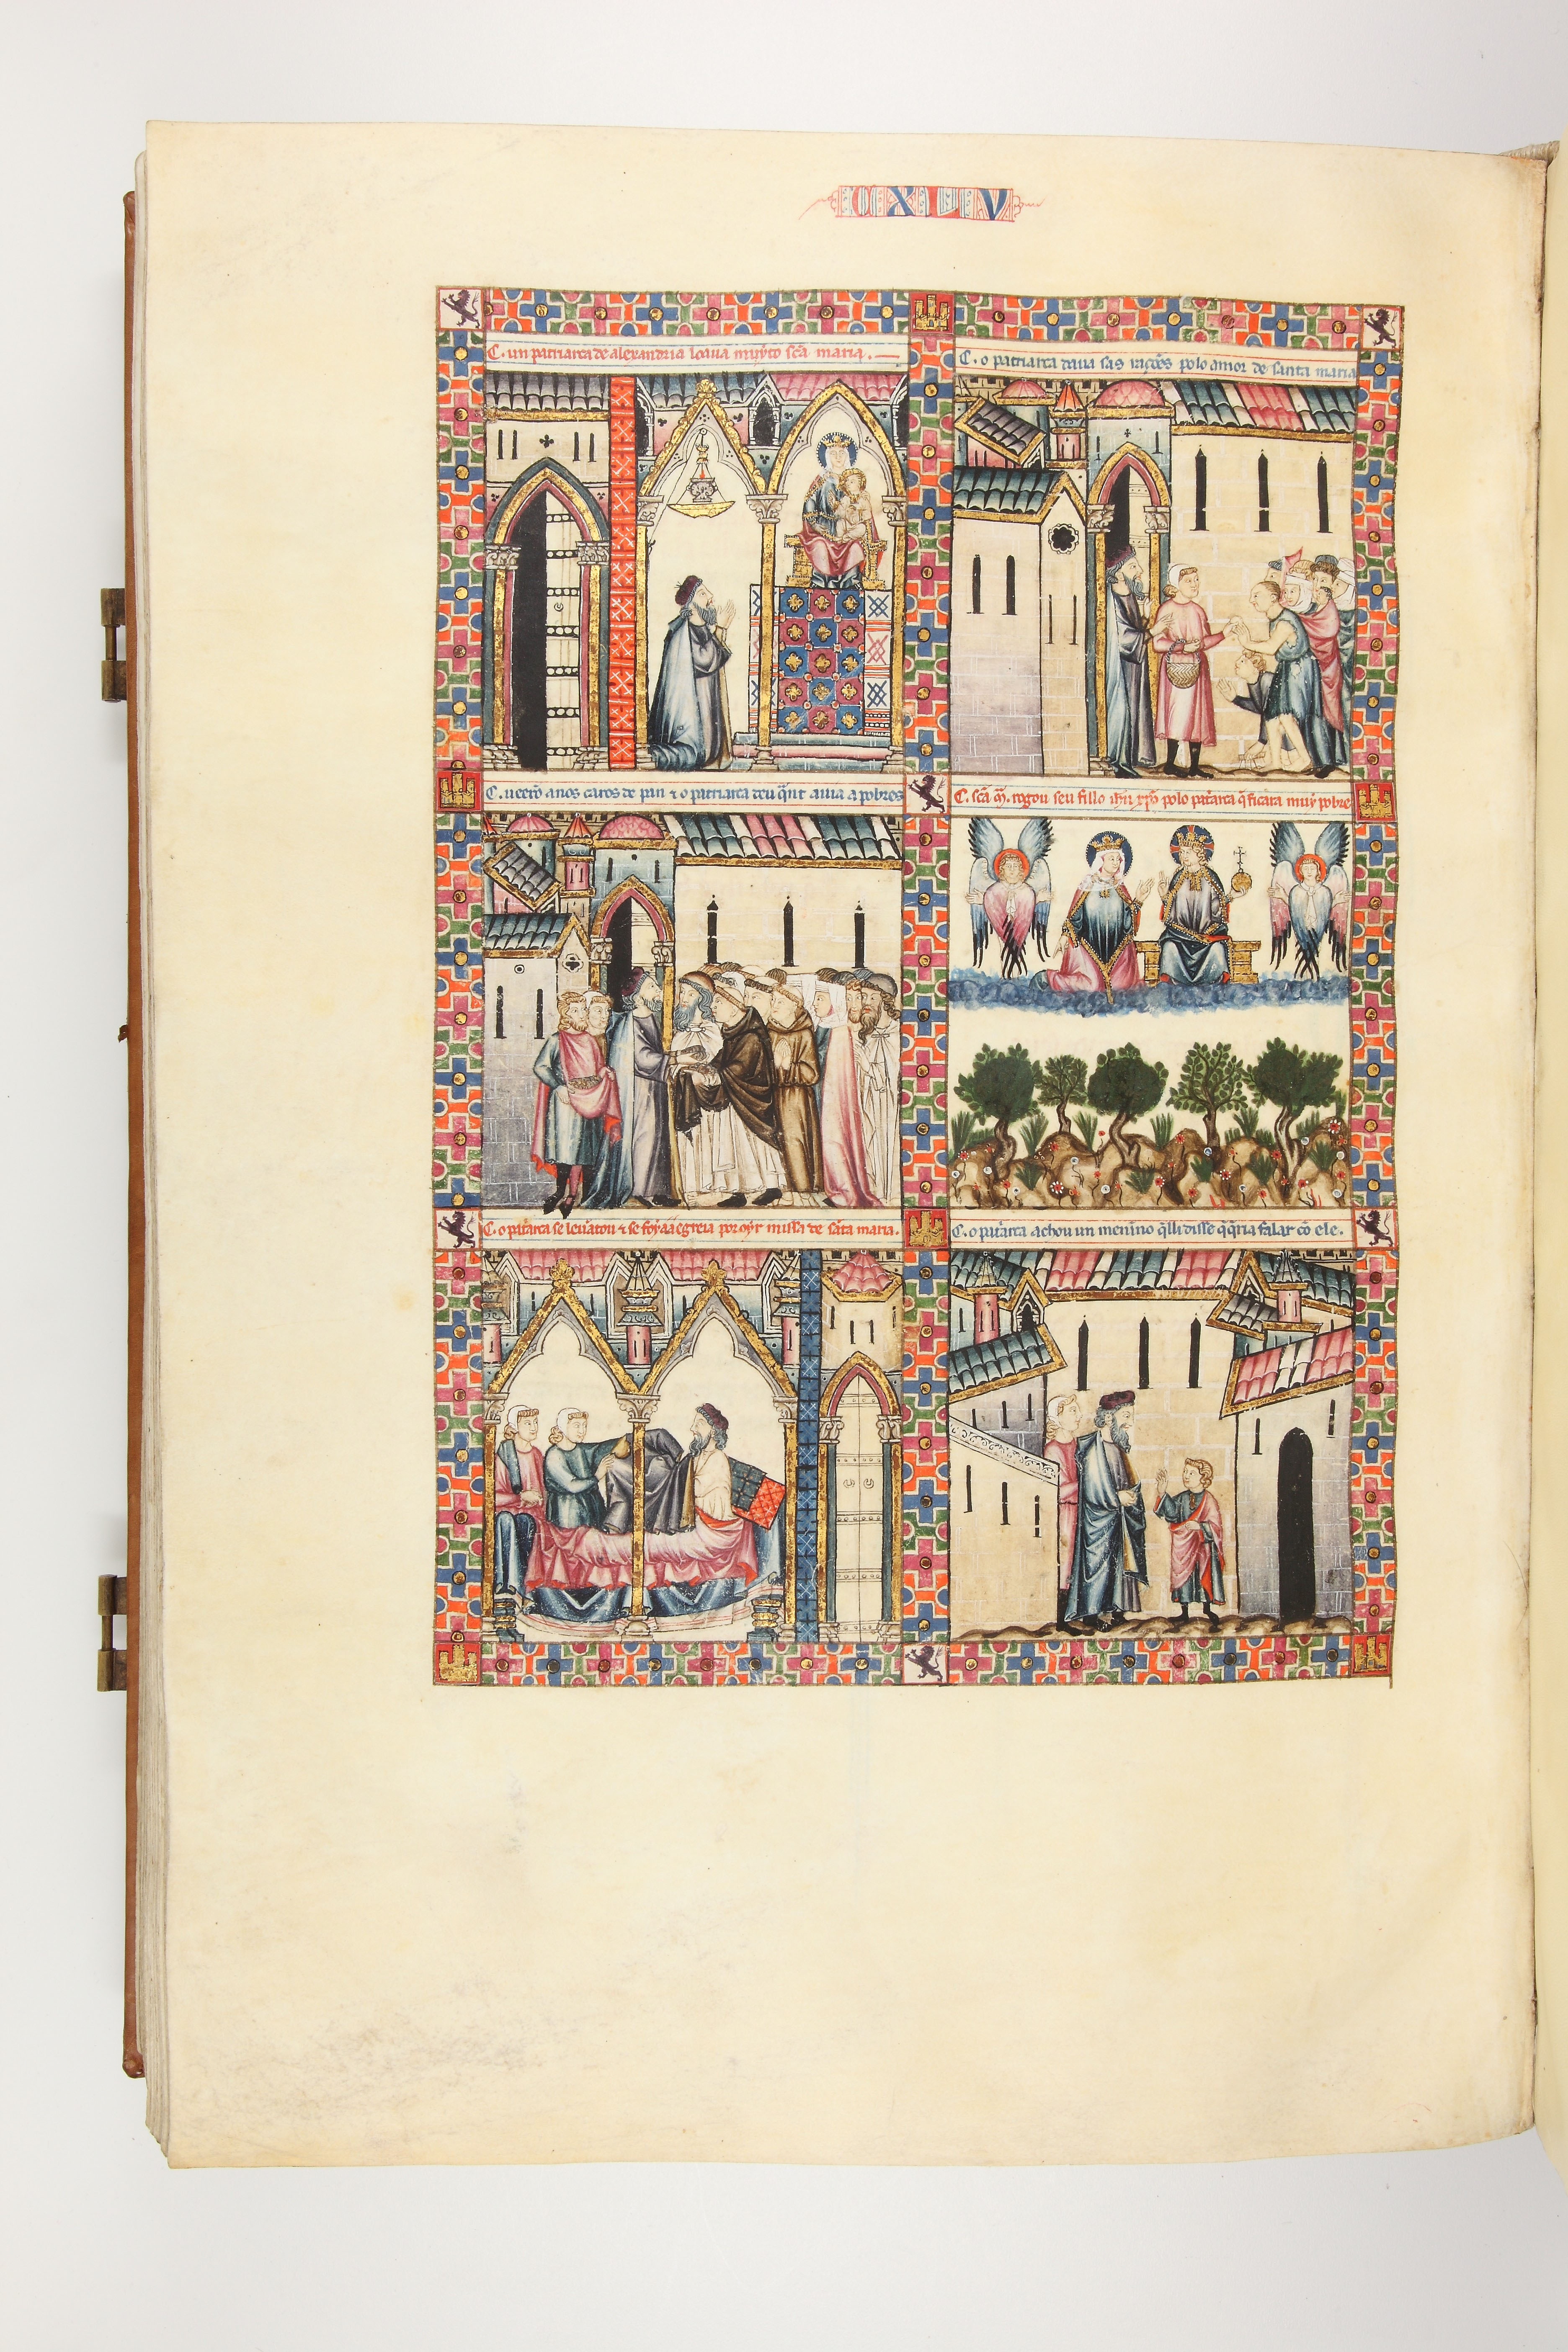 CXLV
C. un patriarca de alexandria loaua muyto sc̃a maria.
C. o patriarca daua sas rações polo amor de santa maria
C. uẽerõ anos caros de pan ⁊ o patriarca deu q̃nt auia a pobres
C. sc̃a m̃. rogou seu fillo ih̃u xp̃o polo pat̃arca q̃ ficara muy pobre
C. o pat̃arca se leuãtou ⁊ se foy aa egreia por oyr missa de sãta maria.
C. o pat̃arca achou un menino q̃lli disse q̃ q̃ria falar cõ ele.